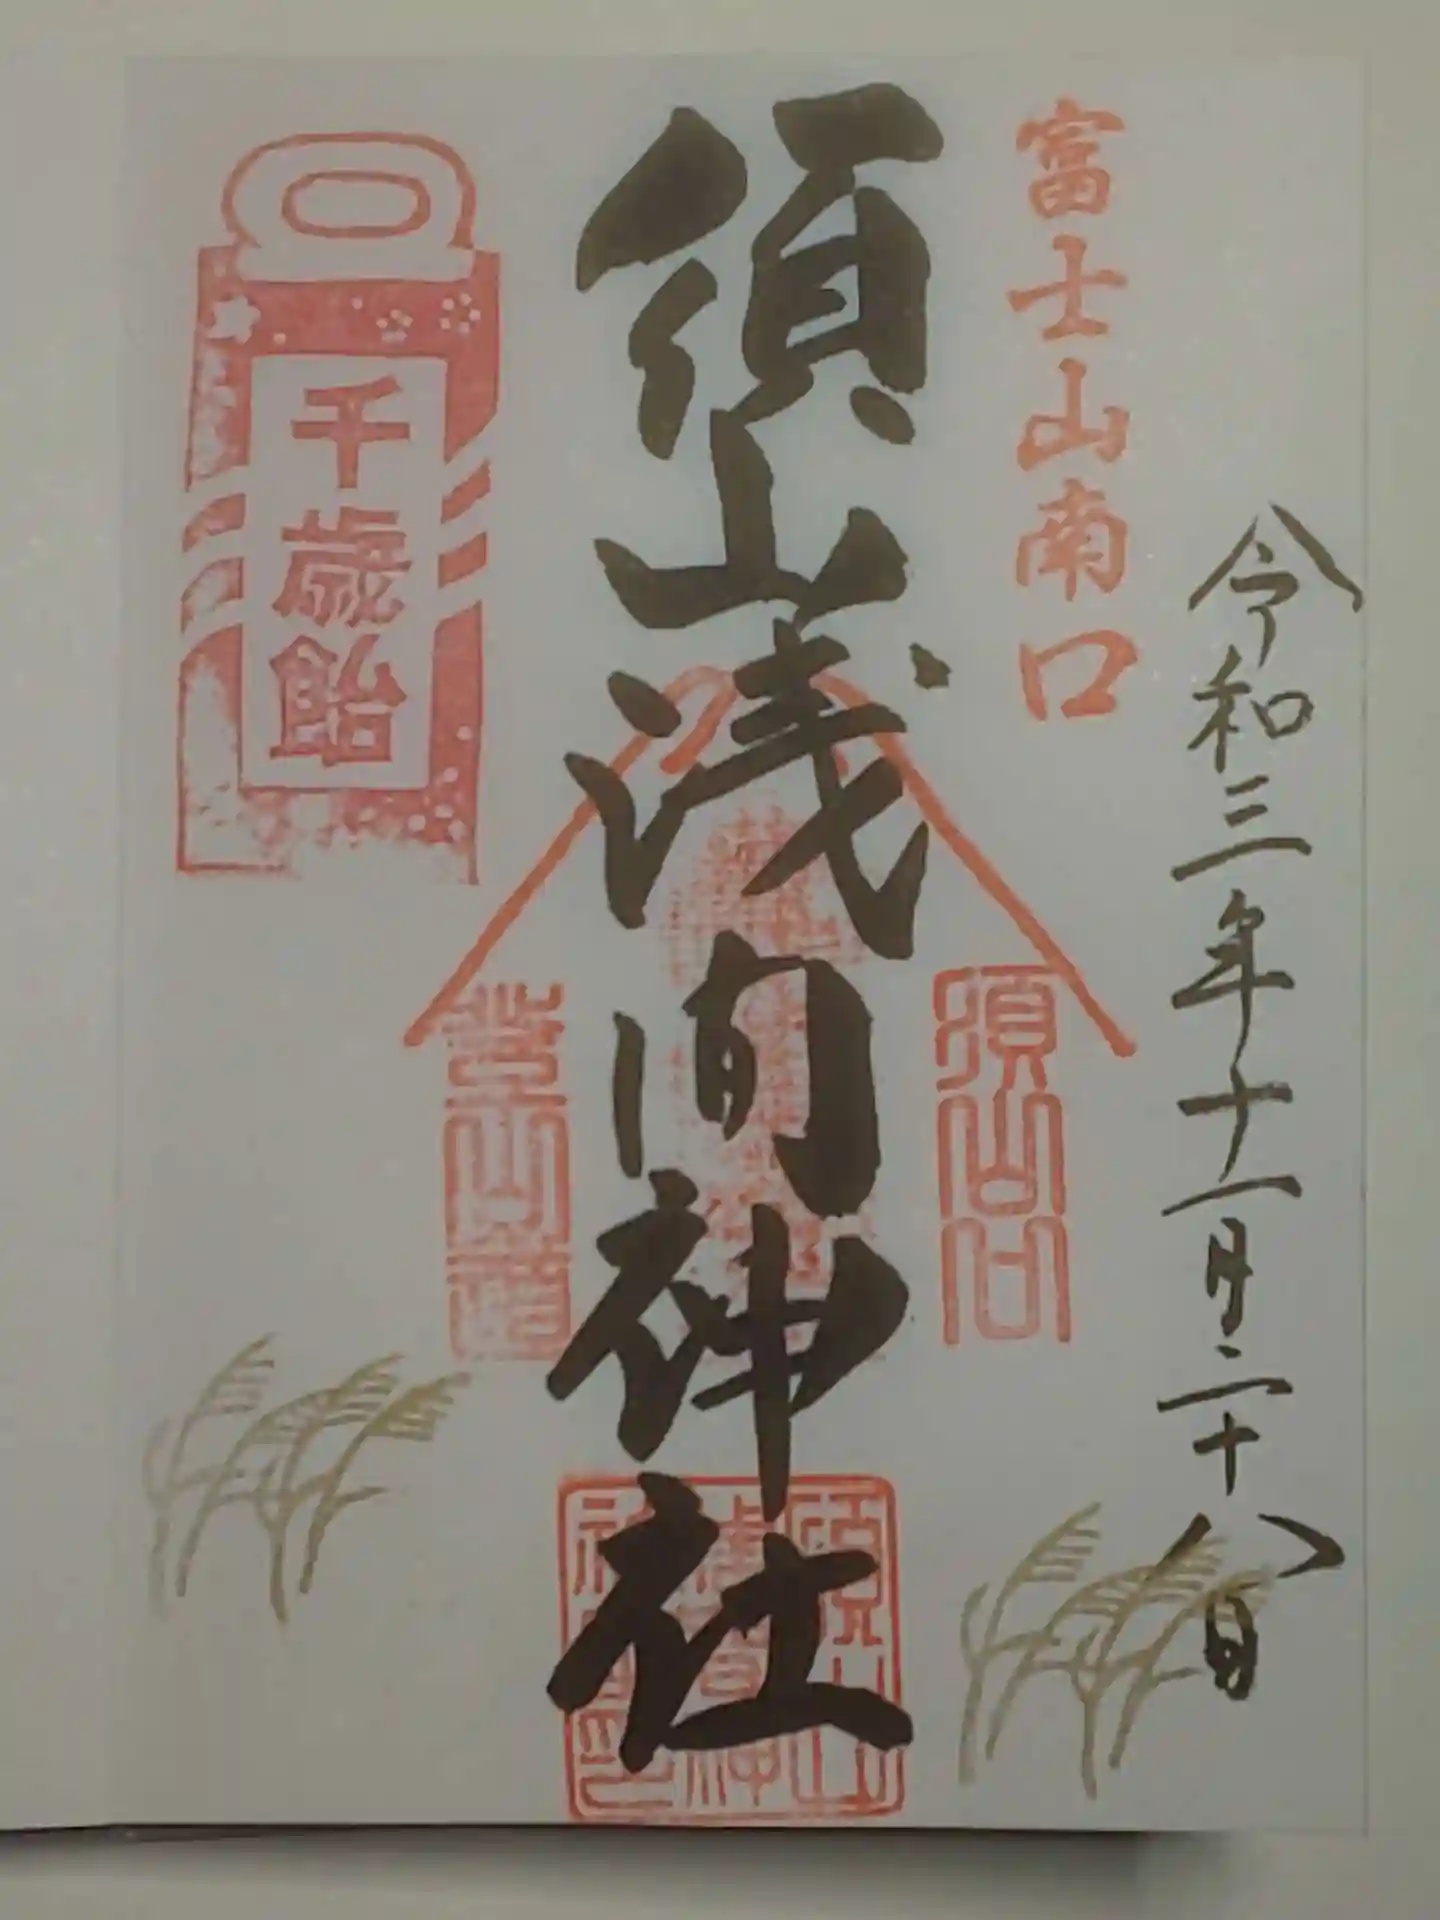 令和三年十一月二十八日
富士山南口
須山浅間神社
須山口
登山道
千歳飴